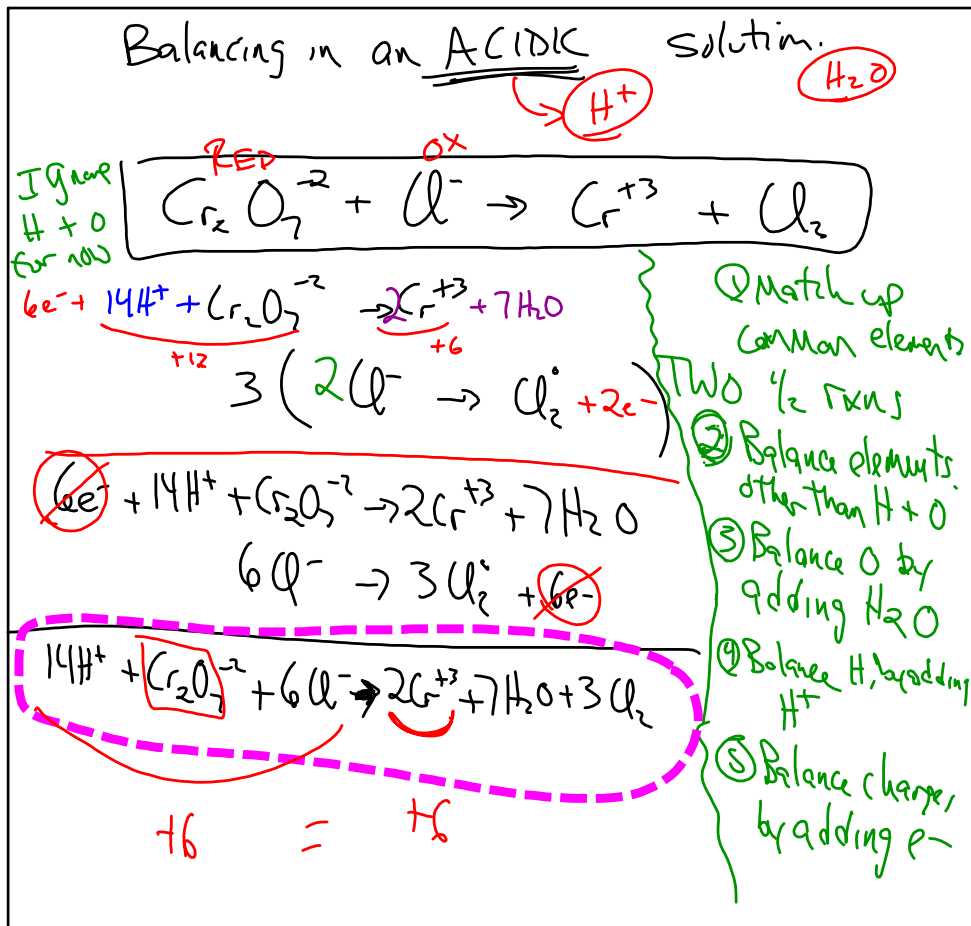 Balancing in an ACIDIC solution.
H⁺
H₂O
RED
OX
Ignore
H + O
for now
Cr₂O₇⁻² + Cl⁻ → Cr⁺³ + Cl₂
6e⁻ + 14H⁺ + Cr₂O₇⁻² → 2Cr⁺³ + 7H₂O
+12
+6
3 ( 2Cl⁻ → Cl₂° + 2e⁻ )
6e⁻ + 14H⁺ + Cr₂O₇⁻² → 2Cr⁺³ + 7H₂O
6Cl⁻ → 3Cl₂° + 6e⁻
14H⁺ + Cr₂O₇⁻² + 6Cl⁻ → 2Cr⁺³ + 7H₂O + 3Cl₂
+6 = +6
① Match up
common elements
TWO ½ rxns
② Balance elements
other than H + O
③ Balance O by
adding H₂O
④ Balance H, by adding
H⁺
⑤ Balance charge,
by adding e-